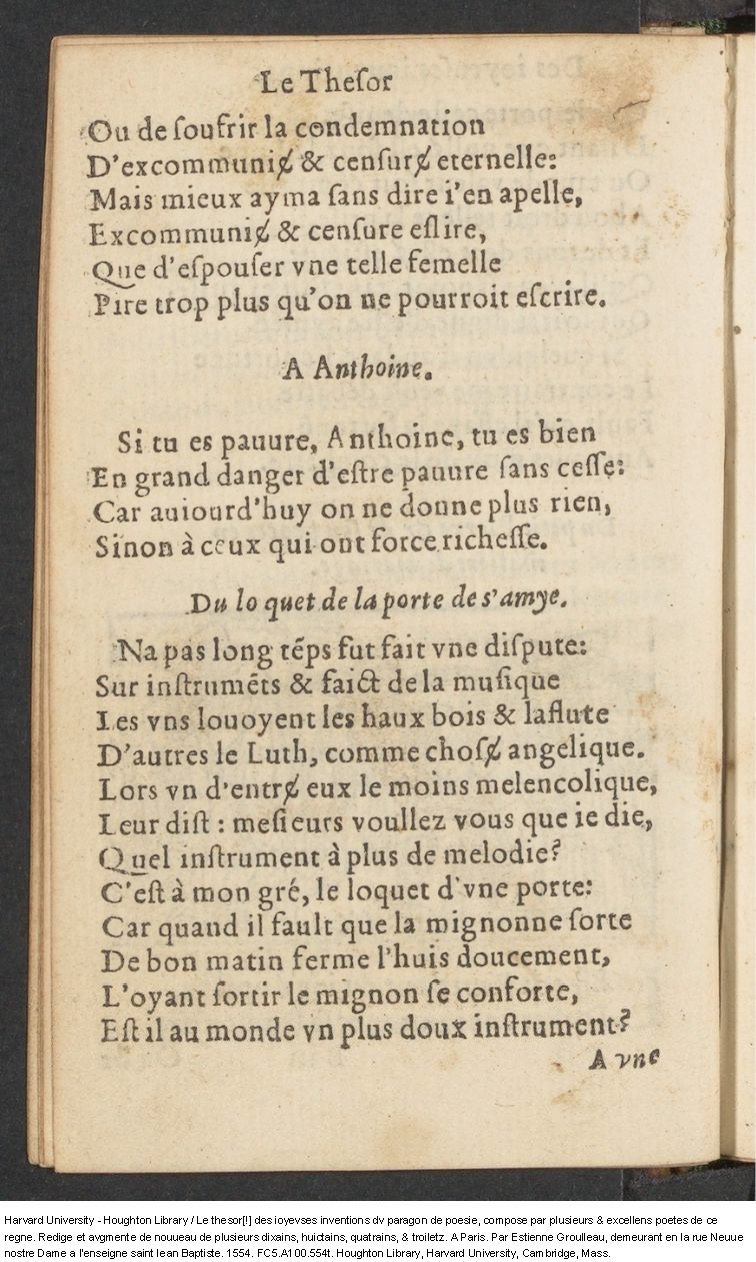 Le Theſor
Ou de ſoufrir la condemnation
D'excommunié̸ & cenſurɇ eternelle:
Mais mieux ayma ſans dire i'en apelle,
Excommuniɇ & cenſure eſlire,
Que d'eſpouſer vne telle femelle
Pire trop plus qu'on ne pourroit eſcrire.
A Anthoine.
Si tu es pauure, Anthoine, tu es bien
En grand danger d'eſtre pauure ſans ceſſe:
Car auiourd'huy on ne donne plus rien,
Sinon à ceux qui ont force richeſſe.
Du lo quet de la porte de s'amye.
Na pas long tẽps fut fait vne diſpute:
Sur inſtrumẽts & faict de la muſique
Les vns louoyent les haux bois & laflute
D'autres le Luth, comme choſɇ angelique.
Lors vn d'entrɇ eux le moins melencolique,
Leur diſt : meſieurs voullez vous que ie die,
Quel inſtrument à plus de melodie?
C'eſt à mon gré, le loquet d'vne porte:
Car quand il fault que la mignonne ſorte
De bon matin ferme l'huis doucement,
L'oyant ſortir le mignon ſe conforte,
Eſt il au monde vn plus doux inſtrument?
A vne
Harvard University - Houghton Library / Le thesor[!] des ioyevses inventions dv paragon de poesie, compose par plusieurs & excellens poetes de ce
regne. Redige et avgmente de nouueau de plusieurs dixains, huictains, quatrains, & troiletz. A Paris. Par Estienne Groulleau, demeurant en la rue Neuue
nostre Dame a l'enseigne saint Iean Baptiste. 1554. FC5.A100.554t. Houghton Library, Harvard University, Cambridge, Mass.